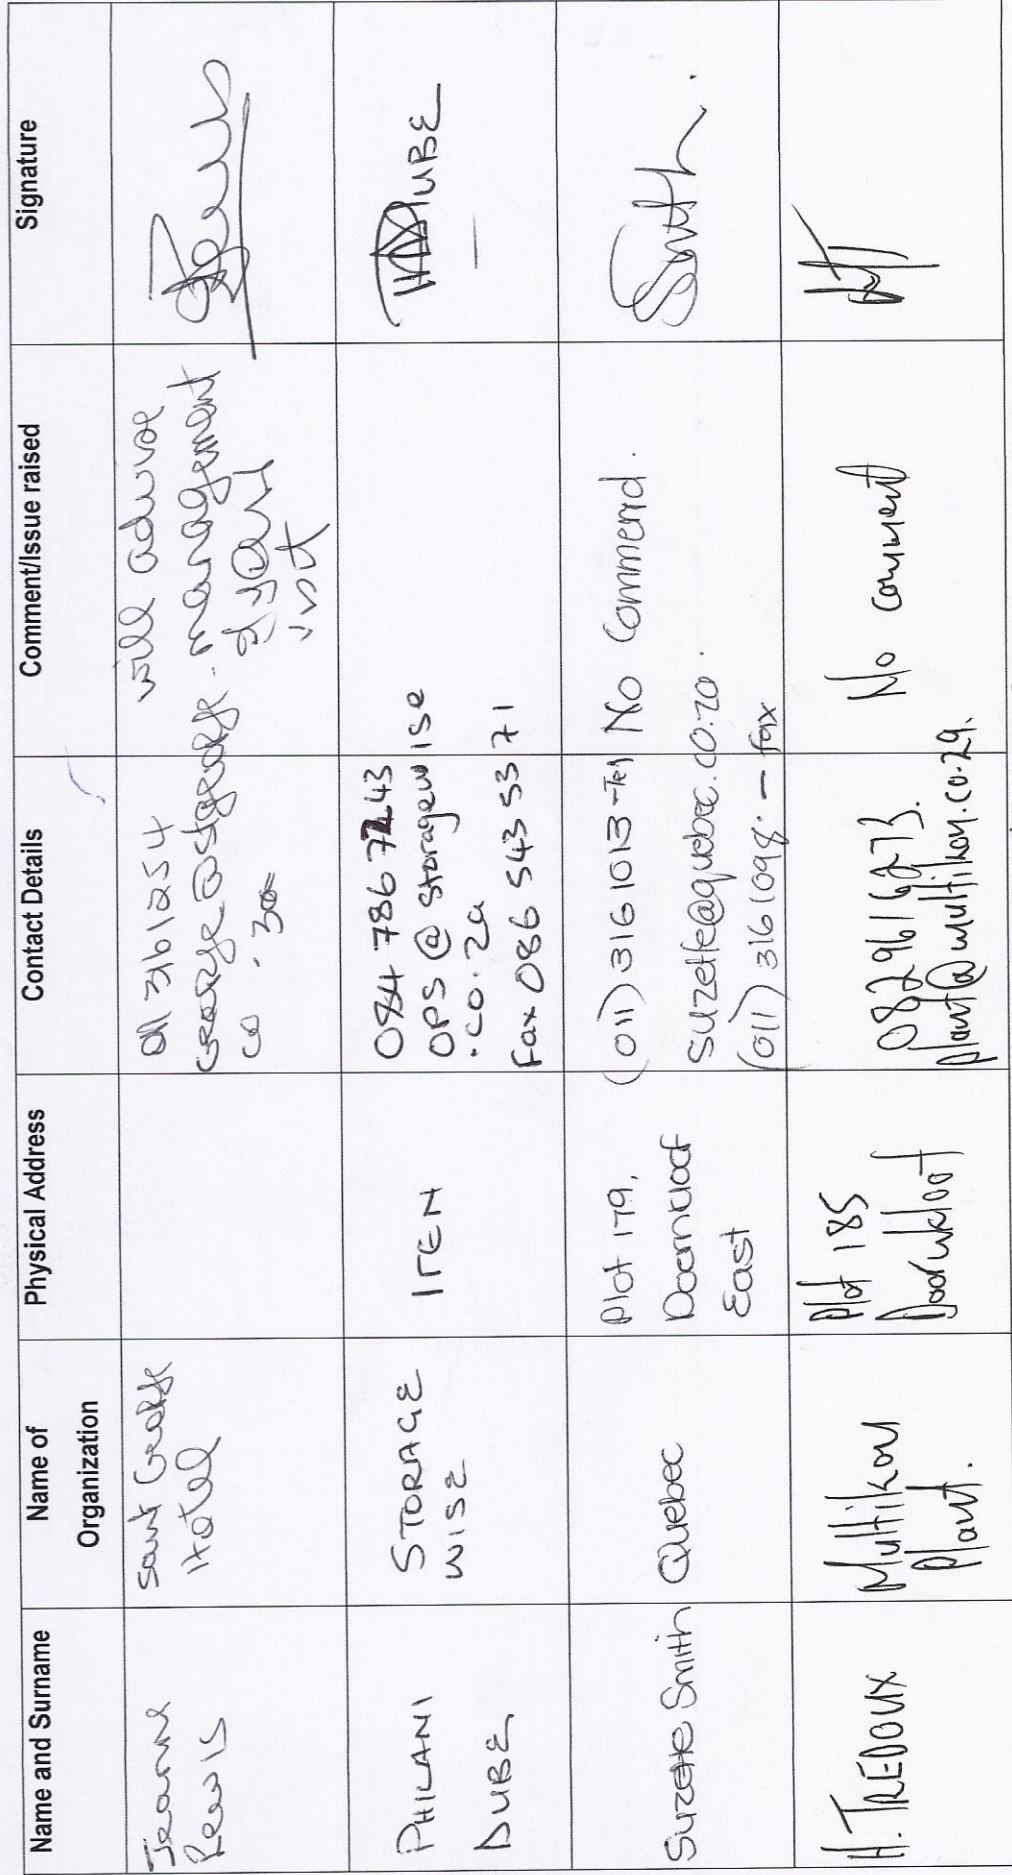 Name and Surname
Name of
Organization
Physical Address
Contact Details
Comment/Issue raised
Signature
Jeanne
Lewis
Saint George
Hotel
011 3161254
george@stgeorge.
co.za
will advise
management
of your
visit
PHILANI
DUBE
STORAGE
WISE
IREN
084 786 7243
OPS@storagewise
.co.za
Fax 086 543 53 71
DUBE
Suzette Smith
Quebec
Plot 179,
Doornkloof
East
(011) 316 1013-Tel
suzette@quebec.co.za.
(011) 316 1098. - fax
No Comment.
Smith.
H. TREDOUX
Multikon
Plant.
Plot 185
Doornkloof
0829616273.
plant@multikon.co.za.
No comment